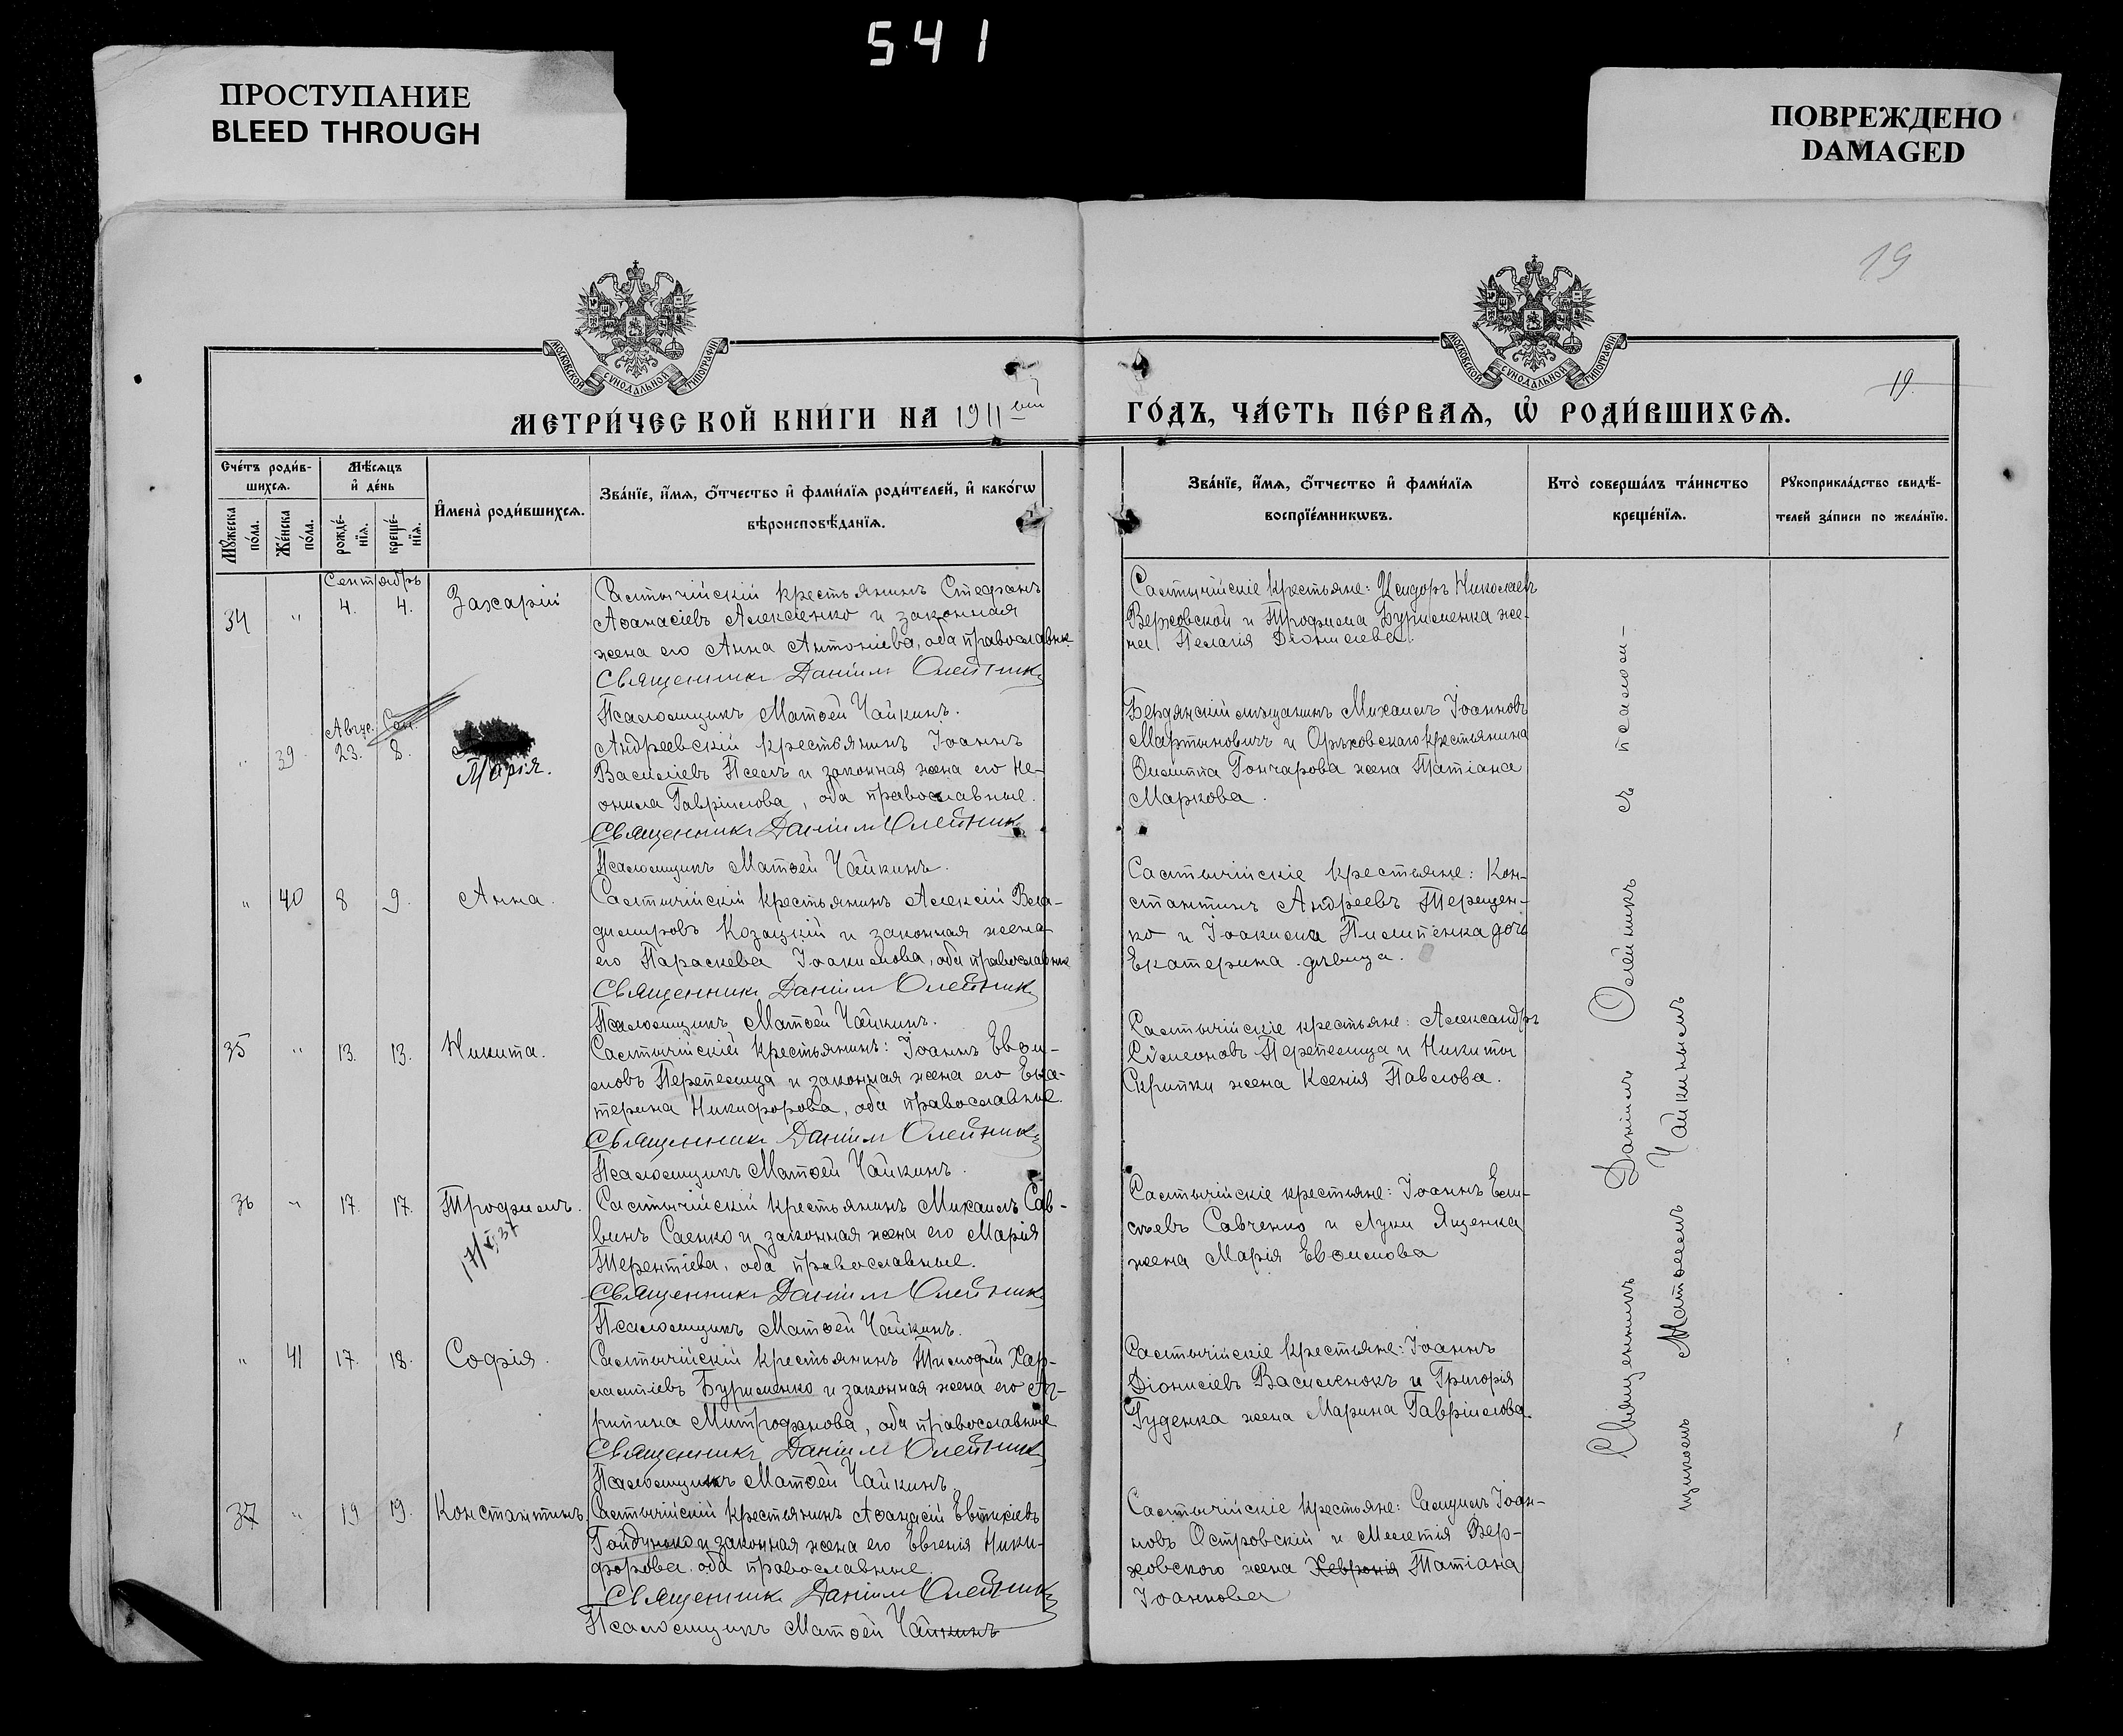 541
ПРОСТУПАНИЕ
BLEED THROUGH
ПОВРЕЖДЕНО
DAMAGED
19
МОСКОВСКОЙ СѴНОДАЛЬНОЙ ТИПОГРАФІИ
МОСКОВСКОЙ СѴНОДАЛЬНОЙ ТИПОГРАФІИ
19
МЕТРИ́ЧЕСКОЙ КНИ́ГИ НА 1911
ГО́ДЪ, ЧА́СТЬ ПЕ́РВАѦ, Ѡ҆ РОДИ́ВШИХСѦ.
Сче́тъ роди́в-
шихсѧ.
Мꙋ́жеска по́ла.
Же́нска по́ла.
Мѣ́сѧцъ
и҆ де́нь
рожде́-
нїѧ.
креще́-
нїѧ.
И҆мена̀ роди́вшихсѧ.
Зва́нїе, и҆́мѧ, ѻ҆́тчество и҆ фами́лїѧ роди́телей, и҆ како́гѡ
вѣроисповѣ́данїѧ.
Зва́нїе, и҆́мѧ, ѻ҆́тчество и҆ фами́лїѧ
воспрїе́мникѡвъ.
Кто̀ соверша́лъ та́инство
креще́нїѧ.
Рꙋкоприкла́дство свидѣ́-
телей за́писи по жела́нїю.
Сентябрь
34 " 4. 4. Захарій
Салтычійскій крестьянинъ Стефанъ
Аѳанасіевъ Алексѣенко и законная
жена его Анна Антоніева, оба православные.
Священникъ Даніилъ Олейникъ
Псаломщикъ Матѳей Чайкинъ.
Салтычійскіе крестьяне: Исидоръ Николаевъ
Верховской и Трофима Бурименка же-
на Пелагія Діонисіева.
Авгус. Сен.
" 39 23. 8.
Марія.
Андреевскій крестьянинъ Іоаннъ
Василіевъ Пселъ и законная жена его Не-
онила Гавріилова, оба православные.
Священникъ Даніилъ Олейникъ
Псаломщикъ Матѳей Чайкинъ.
Бердянскій мѣщанинъ Михаилъ Іоанновъ
Мартыновичъ и Орѣховскаго крестьянина
Филиппа Гончарова жена Татіана
Маркова.
" 40 8 9. Анна.
Салтычійскій крестьянинъ Алексій Вла-
диміровъ Козацкій и законная жена
его Параскева Іоакимова, оба православные
Священникъ Даніилъ Олейникъ
Псаломщикъ Матѳей Чайкинъ.
Салтычійскіе крестьяне: Кон-
стантинъ Андреевъ Терещен-
ко и Іоакима Пилипенка дочь
Екатерина дѣвица.
35 " 13. 13. Никита.
Салтычійскій крестьянинъ: Іоаннъ Евѳи-
мовъ Перепелица и законная жена его Ека-
терина Никифорова, оба православные.
Священникъ Даніилъ Олейникъ
Псаломщикъ Матѳей Чайкинъ.
Салтычійскіе крестьяне: Александръ
Сѵмеоновъ Перепелица и Никиты
Скрипки жена Ксенія Павлова.
36 " 17. 17. Трофимъ.
Салтычійскій крестьянинъ Михаилъ Сав-
винъ Саенко и законная жена его Марія
Терентіева, оба православные.
Священникъ Даніилъ Олейникъ
Псаломщикъ Матѳей Чайкинъ.
Салтычійскіе крестьяне: Іоаннъ Ели-
сѣевъ Савченко и Луки Яценка
жена Марія Евѳимова
" 41 17. 18. Софія.
Салтычійскій крестьянинъ Тимофей Хар-
лампіевъ Бурименко и законная жена его Аг-
рипина Митрофанова, оба православные
Священникъ Даніилъ Олейникъ
Псаломщикъ Матѳей Чайкинъ.
Салтычійскіе крестьяне: Іоаннъ
Діонисіевъ Василенокъ и Григорія
Гуденка жена Марина Гавріилова.
37 " 19 19. Константинъ.
Салтычійскій крестьянинъ Аѳанасій Евтихіевъ
Гайдунько и законная жена его Евгенія Ники-
форова. оба православные.
Священникъ Даніилъ Олейникъ
Псаломщикъ Матѳей Чайкинъ
Салтычійскіе крестьяне: Самуилъ Іоан-
новъ Островскій и Мелетія Вер-
ховского жена Хеврокія Татіана
Іоаннова
Священникъ Даніилъ Олейникъ съ псалом-
щикомъ Матѳеемъ Чайкинымъ